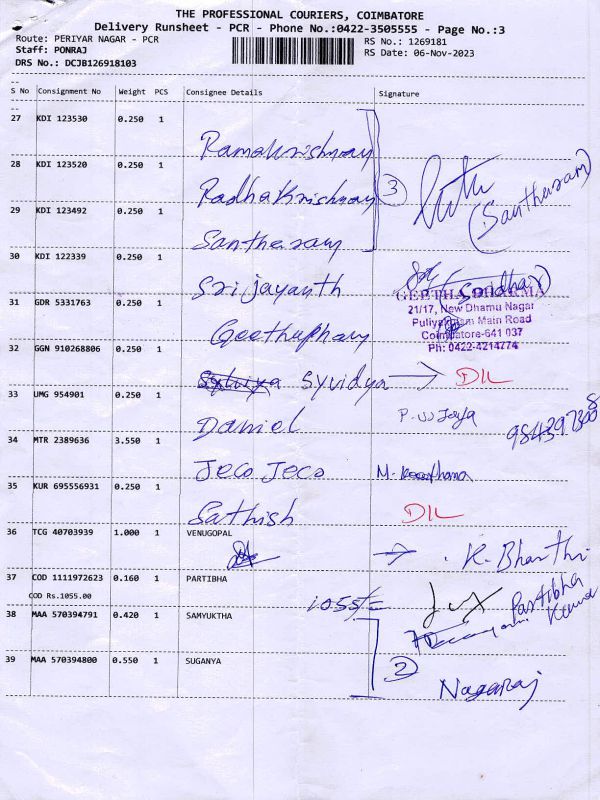 THE PROFESSIONAL COURIERS, COIMBATORE
Delivery Runsheet - PCR - Phone No.:0422-3505555 - Page No.:3
Route: PERIYAR NAGAR - PCR RS No.: 1269181
Staff: PONRAJ RS Date: 06-Nov-2023
DRS No.: DCJB126918103
S No Consignment No Weight PCS Consignee Details Signature
27 KDI 123530 0.250 1
Ramakrishnan
28 KDI 123520 0.250 1
Radhakrishnan 3
(Santheram)
29 KDI 123492 0.250 1
Santheram
30 KDI 122339 0.250 1
Srijayanth
GEETHA PHARMA
31 GDR 5331763 0.250 1 21/17, New Dhamu Nagar
Puliyakulam Main Road
Geethapham Coimbatore-641 037
32 GGN 910268806 0.250 1 Ph: 0422-4214774
Syvidya → DIL
33 UMG 954901 0.250 1
Daniel
34 MTR 2389636 3.550 1
Jeco Jeco
35 KUR 695556931 0.250 1
Sathish DIL
36 TCG 40703939 1.000 1 VENUGOPAL
→ K. Bharthi
37 COD 1111972623 0.160 1 PARTIBHA
COD Rs.1055.00 1055/= Partibha
38 MAA 570394791 0.420 1 SAMYUKTHA
39 MAA 570394800 0.550 1 SUGANYA 2
Nagaraj